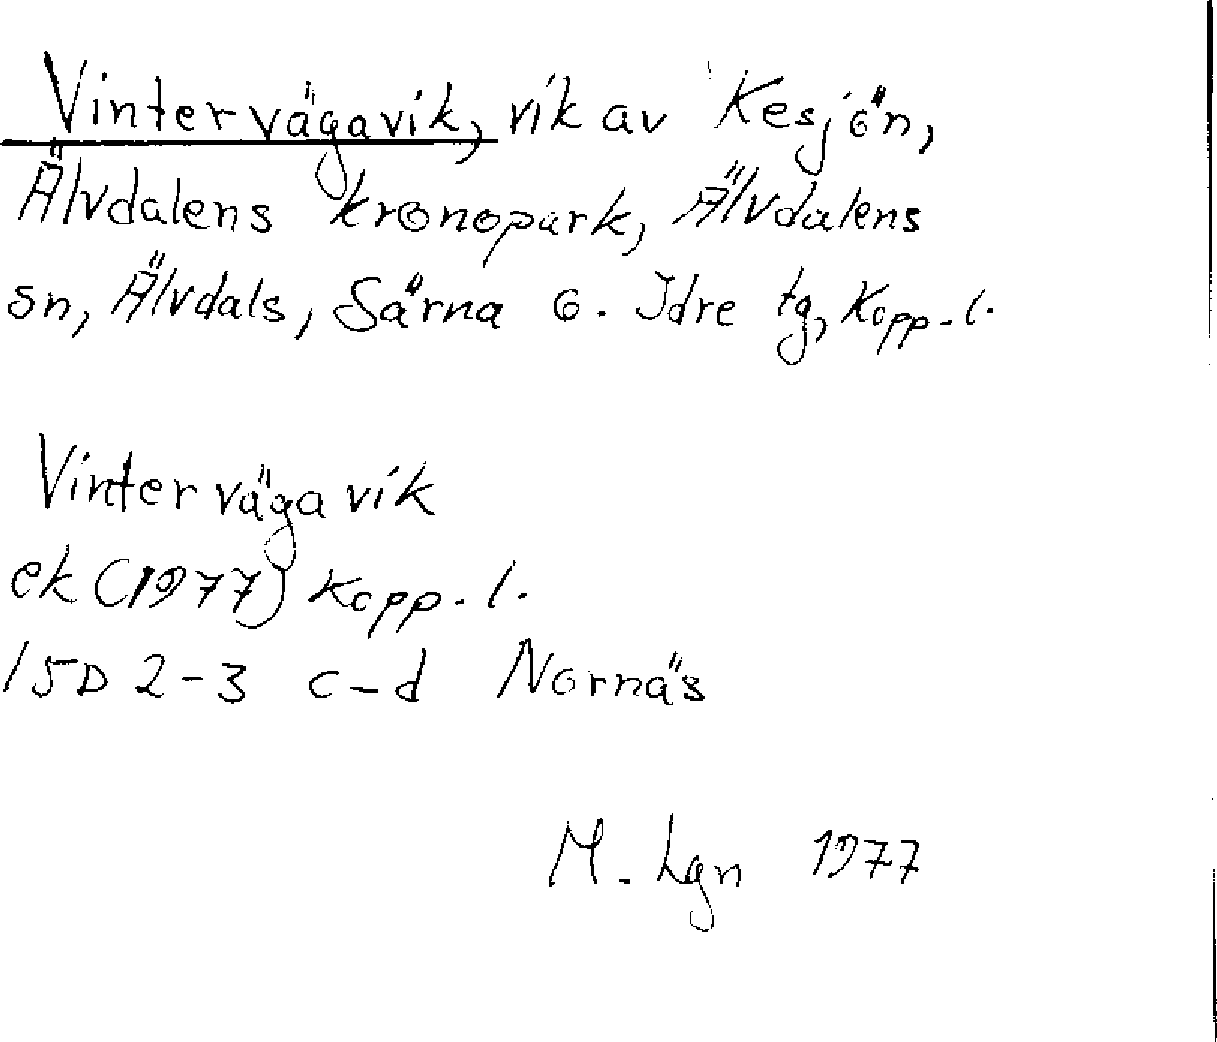 Vintervägavik, vik av Kesjön,
Älvdalens kronopark, Älvdalens
sn, Älvdals, Särna o. Idre tg, Kopp. l.
Vintervägavik
ek (1977) Kopp. l.
15D 2-3 c-d Nornäs
M. Lgn 1977